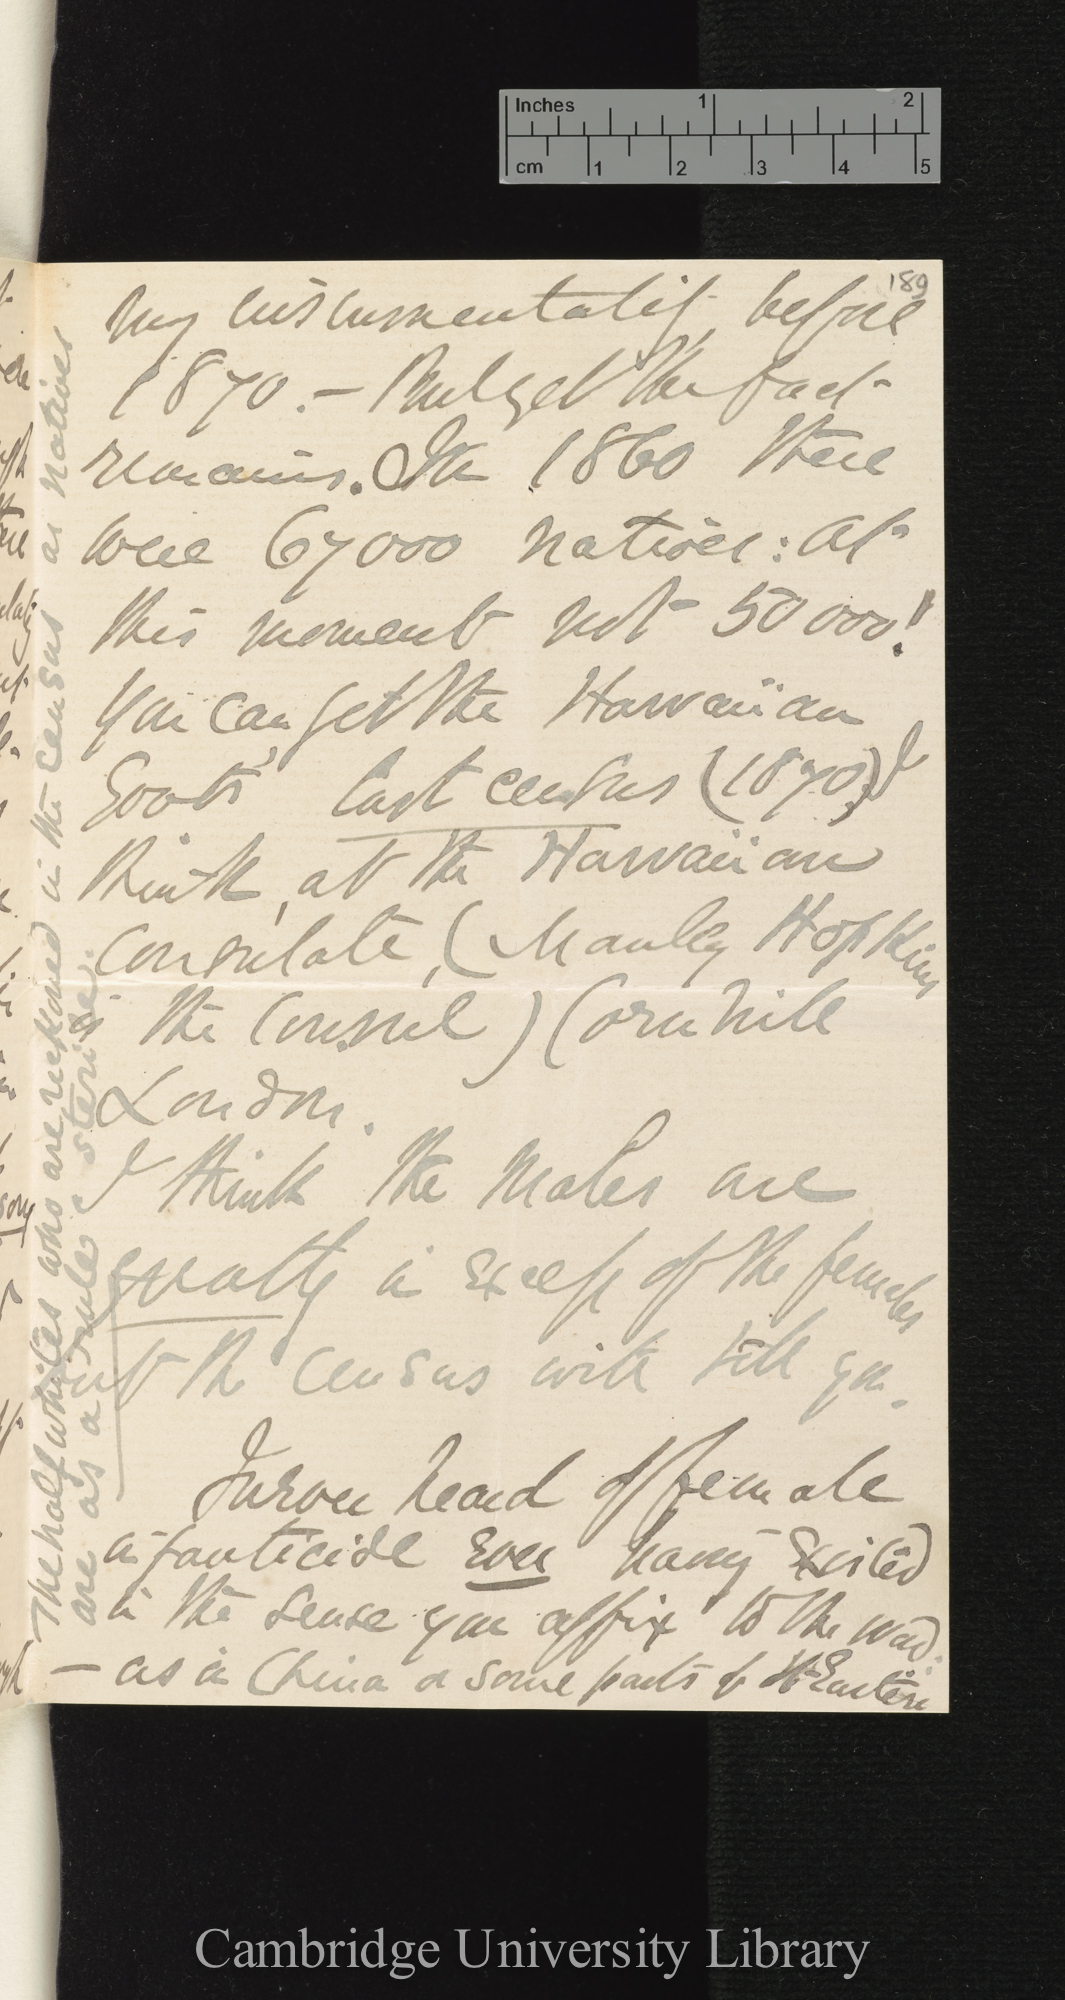 Inches 1 2
cm 1 2 3 4 5
189
my instrumentality, before
1870. – But yet the fact
remains. In 1860 there
were 67000 natives: at
this moment not 50000!
You can get the Hawaiian
Govts' last census (1870) I
think, at the Hawaiian
Consulate, (Manley Hopkins
is the Consul) Cornhill
London.
I think the males are
greatly in excess of the females
but the census will tell you.
I never heard of female
infanticide ever having existed
in the sense you affix to the word.
— as in China & some parts of the Eastern
The half whites who are reckoned in the census as natives
are as a rule sterile.
Cambridge University Library